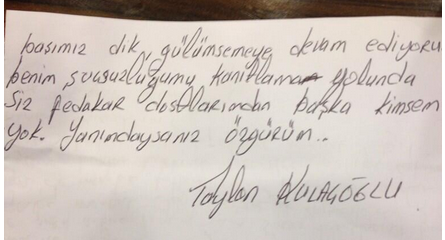 başımız dik, gülümsemeye devam ediyoru
benim suçsuzluğumu kanıtlamak yolunda
Siz fedakar dostlarımdan başka kimsem
yok. Yanımdaysanız özgürüm..
Taylan KULAÇOĞLU